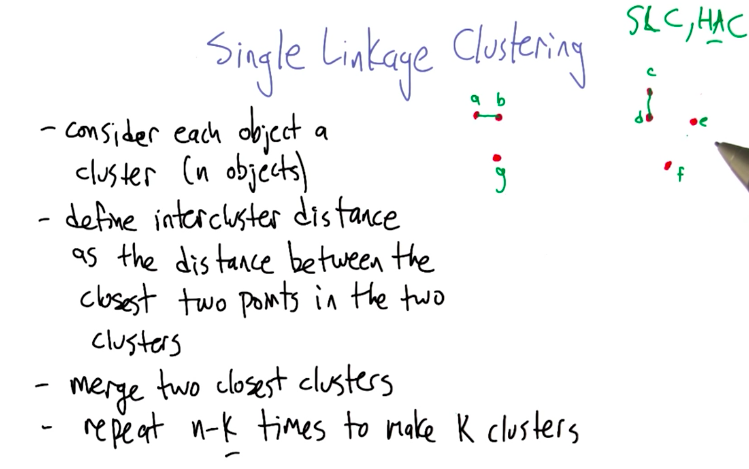 SLC, HAC
Single Linkage Clustering
- consider each object a
cluster (n objects)
- define intercluster distance
as the distance between the
closest two points in the two
clusters
- merge two closest clusters
- repeat n-k times to make k clusters
a b
g
c
d
e
f